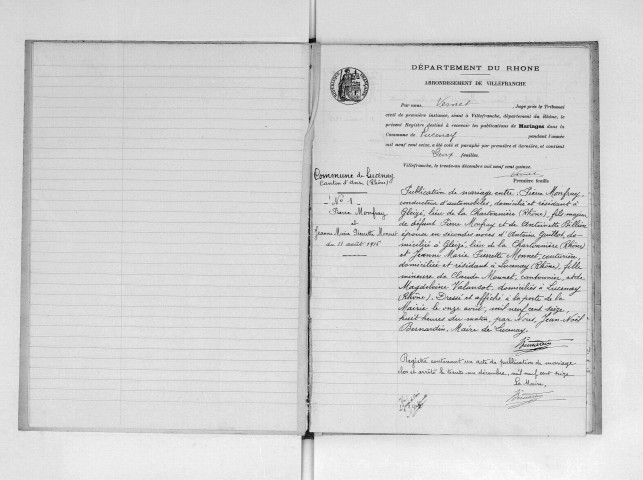 DÉPARTEMENT DU RHONE
ARRONDISSEMENT DE VILLEFRANCHE
Par nous, Vernet, Juge près le Tribunal
civil de première instance, séant à Villefranche, département du Rhône, le
présent Registre destiné à recevoir les publications de Mariages dans la
Commune de Lucenay pendant l'année
mil neuf cent seize, a été coté et paraphé par première et dernière, et contient
Deux feuilles.
Villefranche, le trente-un décembre mil neuf cent quinze.
Première feuille
Commune de Lucenay
Canton d'Anse (Rhône)
- N° 1 -
Pierre Monfray
et
Jeanne Marie Pierrette Monnet
du 11 août 1916
Publication de mariage entre Pierre Monfray,
conducteur d'automobiles, domicilié et résidant à
Gleizé, lieu de la Chartonnière (Rhône), fils majeur
de défunt Pierre Monfray et de Antoinette
épouse en secondes noces d'Antoine Guillot, do-
miciliée à Gleizé, lieu de la Chartonnière (Rhône)
et Jeanne Marie Pierrette Monnet, couturière,
domiciliée et résidant à Lucenay (Rhône), fille
mineure de Claude Monnet, cantonnier, et de
Magdeleine Valansot, domiciliés à Lucenay
(Rhône). Dressé et affiché à la porte de la
Mairie le onze août, mil neuf cent seize,
huit heures du matin, par Nous, Jean Noël
Bernardin, Maire de Lucenay.
Registre contenant un acte de publication de mariage
clos et arrêté le trente un décembre, mil neuf cent seize
Le Maire,